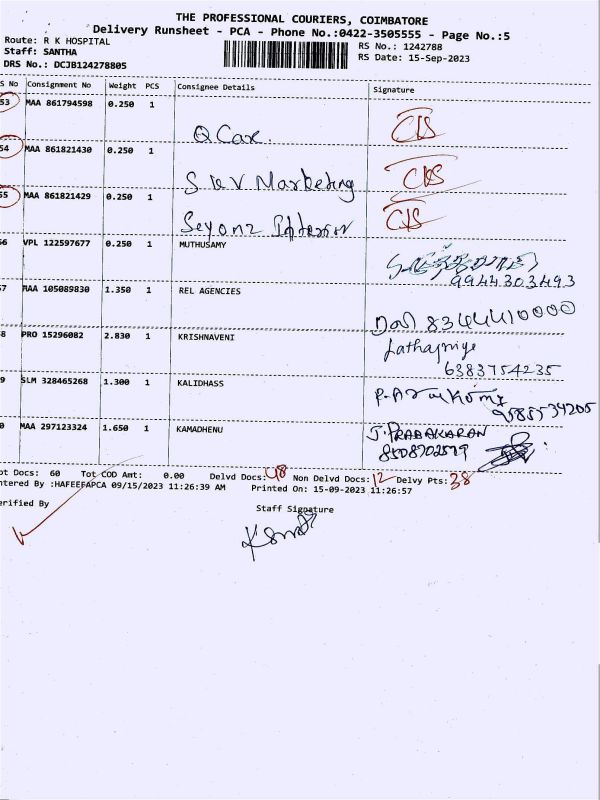 THE PROFESSIONAL COURIERS, COIMBATORE
Delivery Runsheet - PCA - Phone No.:0422-3505555 - Page No.:5
Route: R K HOSPITAL
Staff: SANTHA
DRS No.: DCJB124278805
RS No.: 1242788
RS Date: 15-Sep-2023
S No Consignment No Weight PCS Consignee Details Signature
53 MAA 861794598 0.250 1 Q Care
54 MAA 861821430 0.250 1 S K V Marketing
55 MAA 861821429 0.250 1 Seyonz Interior
56 VPL 122597677 0.250 1 MUTHUSAMY
9944303493
7 MAA 105089830 1.350 1 REL AGENCIES
8344410000
8 PRO 15296082 2.830 1 KRISHNAVENI
6383754235
9 SLM 328465268 1.300 1 KALIDHASS
9585534205
0 MAA 297123324 1.650 1 KAMADHENU J. PRABAKARAN
8508702579
ot Docs: 60 Tot COD Amt: 0.00 Delvd Docs: 48 Non Delvd Docs: 12 Delvy Pts: 38
ntered By :HAFEEFAPCA 09/15/2023 11:26:39 AM Printed On: 15-09-2023 11:26:57
erified By Staff Signature